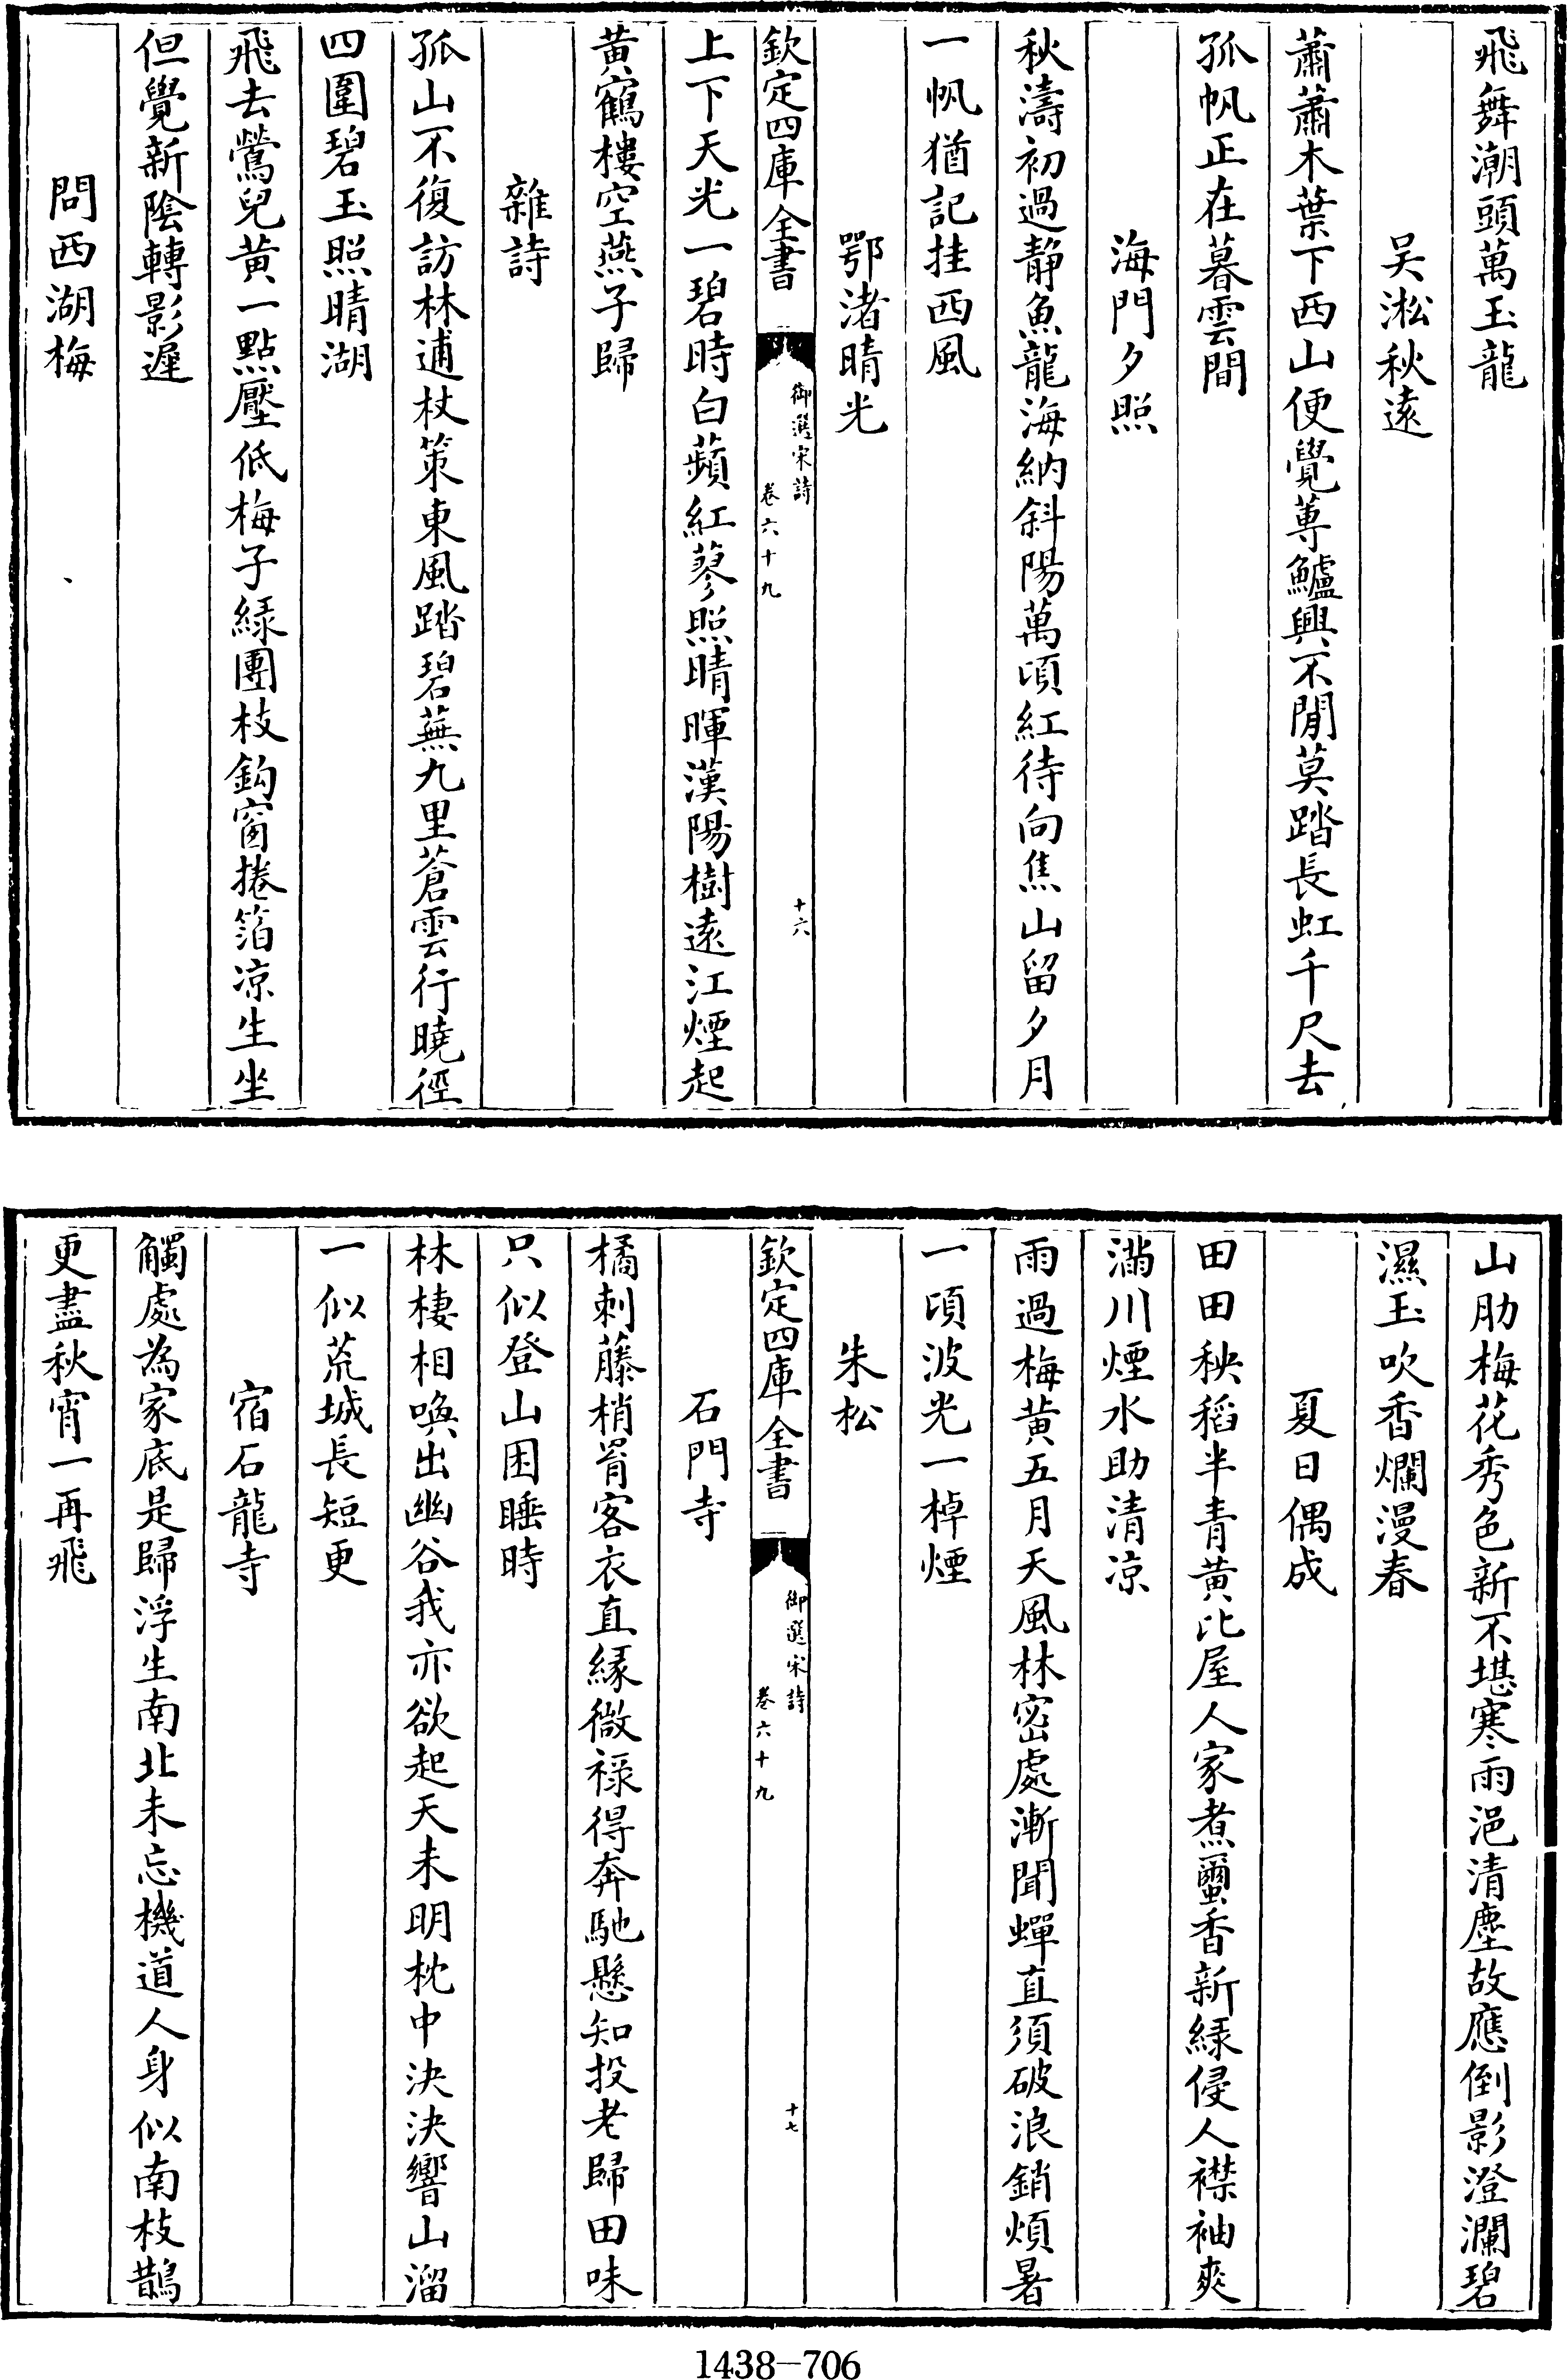 飛舞潮頭萬玉龍
吴淞秋遠
蕭蕭木葉下西山便覺蓴鱸興不閒莫踏長虹千尺去
孤帆正在暮雲間
海門夕照
秋濤初過静魚龍海納斜陽萬頃紅待向焦山留夕月
一帆猶記挂西風
鄂渚晴光
欽定四庫全書
御選宋詩
卷六十九
十六
上下天光一碧時白蘋紅蓼照晴暉漢陽樹遠江煙起
黄鶴樓空燕子歸
雜詩
孤山不復訪林逋杖策東風踏碧蕪九里蒼雲行曉徑
四圍碧玉照晴湖
飛去鶯兒黄一點壓低梅子緑團枝鈎窗捲箔凉生坐
但覺新陰轉影遲
問西湖梅
山肋梅花秀色新不堪寒雨浥清塵故應倒影澄瀾碧
濕玉吹香爛漫春
夏日偶成
田田秧稻半青黄比屋人家煮蠒香新緑侵人襟袖爽
滿川煙水助清凉
雨過梅黄五月天風林密處漸聞蟬直須破浪銷煩暑
一頃波光一棹煙
朱松
欽定四庫全書
御選宋詩
卷六十九
十七
石門寺
橘刺藤梢罥客衣直緣微禄得奔馳懸知投老歸田味
只似登山困睡時
林棲相喚出幽谷我亦欲起天未明枕中決決響山溜
一似荒城長短更
宿石龍寺
觸處為家底是歸浮生南北未忘機道人身似南枝鵲
更盡秋宵一再飛
1438-706